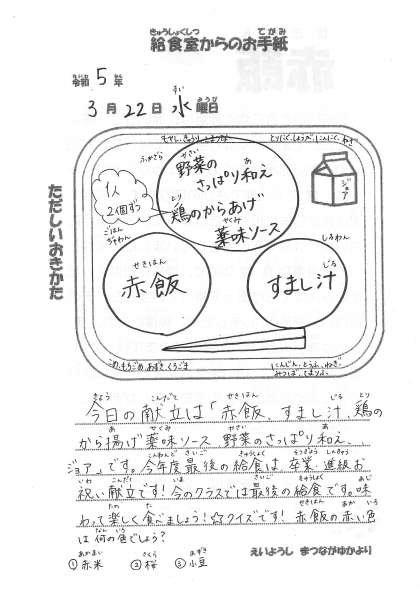 給食室からのお手紙
令和5年
3月22日水曜日
もやし、きゅうり、こまつな
とりにく、しょうが、にんにく、ねぎ
ふかざら
野菜の
さっぱり和え
1人
2個ずつ
鶏のからあげ
薬味ソース
ジョア
ごはん
ちゃわん
しるわん
赤飯
すまし汁
ただしいおきかた
こめ、もちごめ、あずき、くろごま
にんじん、とうふ、ねぎ、
みつば、てまりふ
今日の献立は「赤飯、すまし汁、鶏の
から揚げ薬味ソース 野菜のさっぱり和え、
ジョア」です。今年度最後の給食は、卒業・進級お
祝い献立です!今のクラスでは最後の給食です。味
わって楽しく食べましょう!☆クイズです! 赤飯の赤い色
は何の色でしょう?
①赤米 ②桜 ③小豆
えいようし まつながゆかより